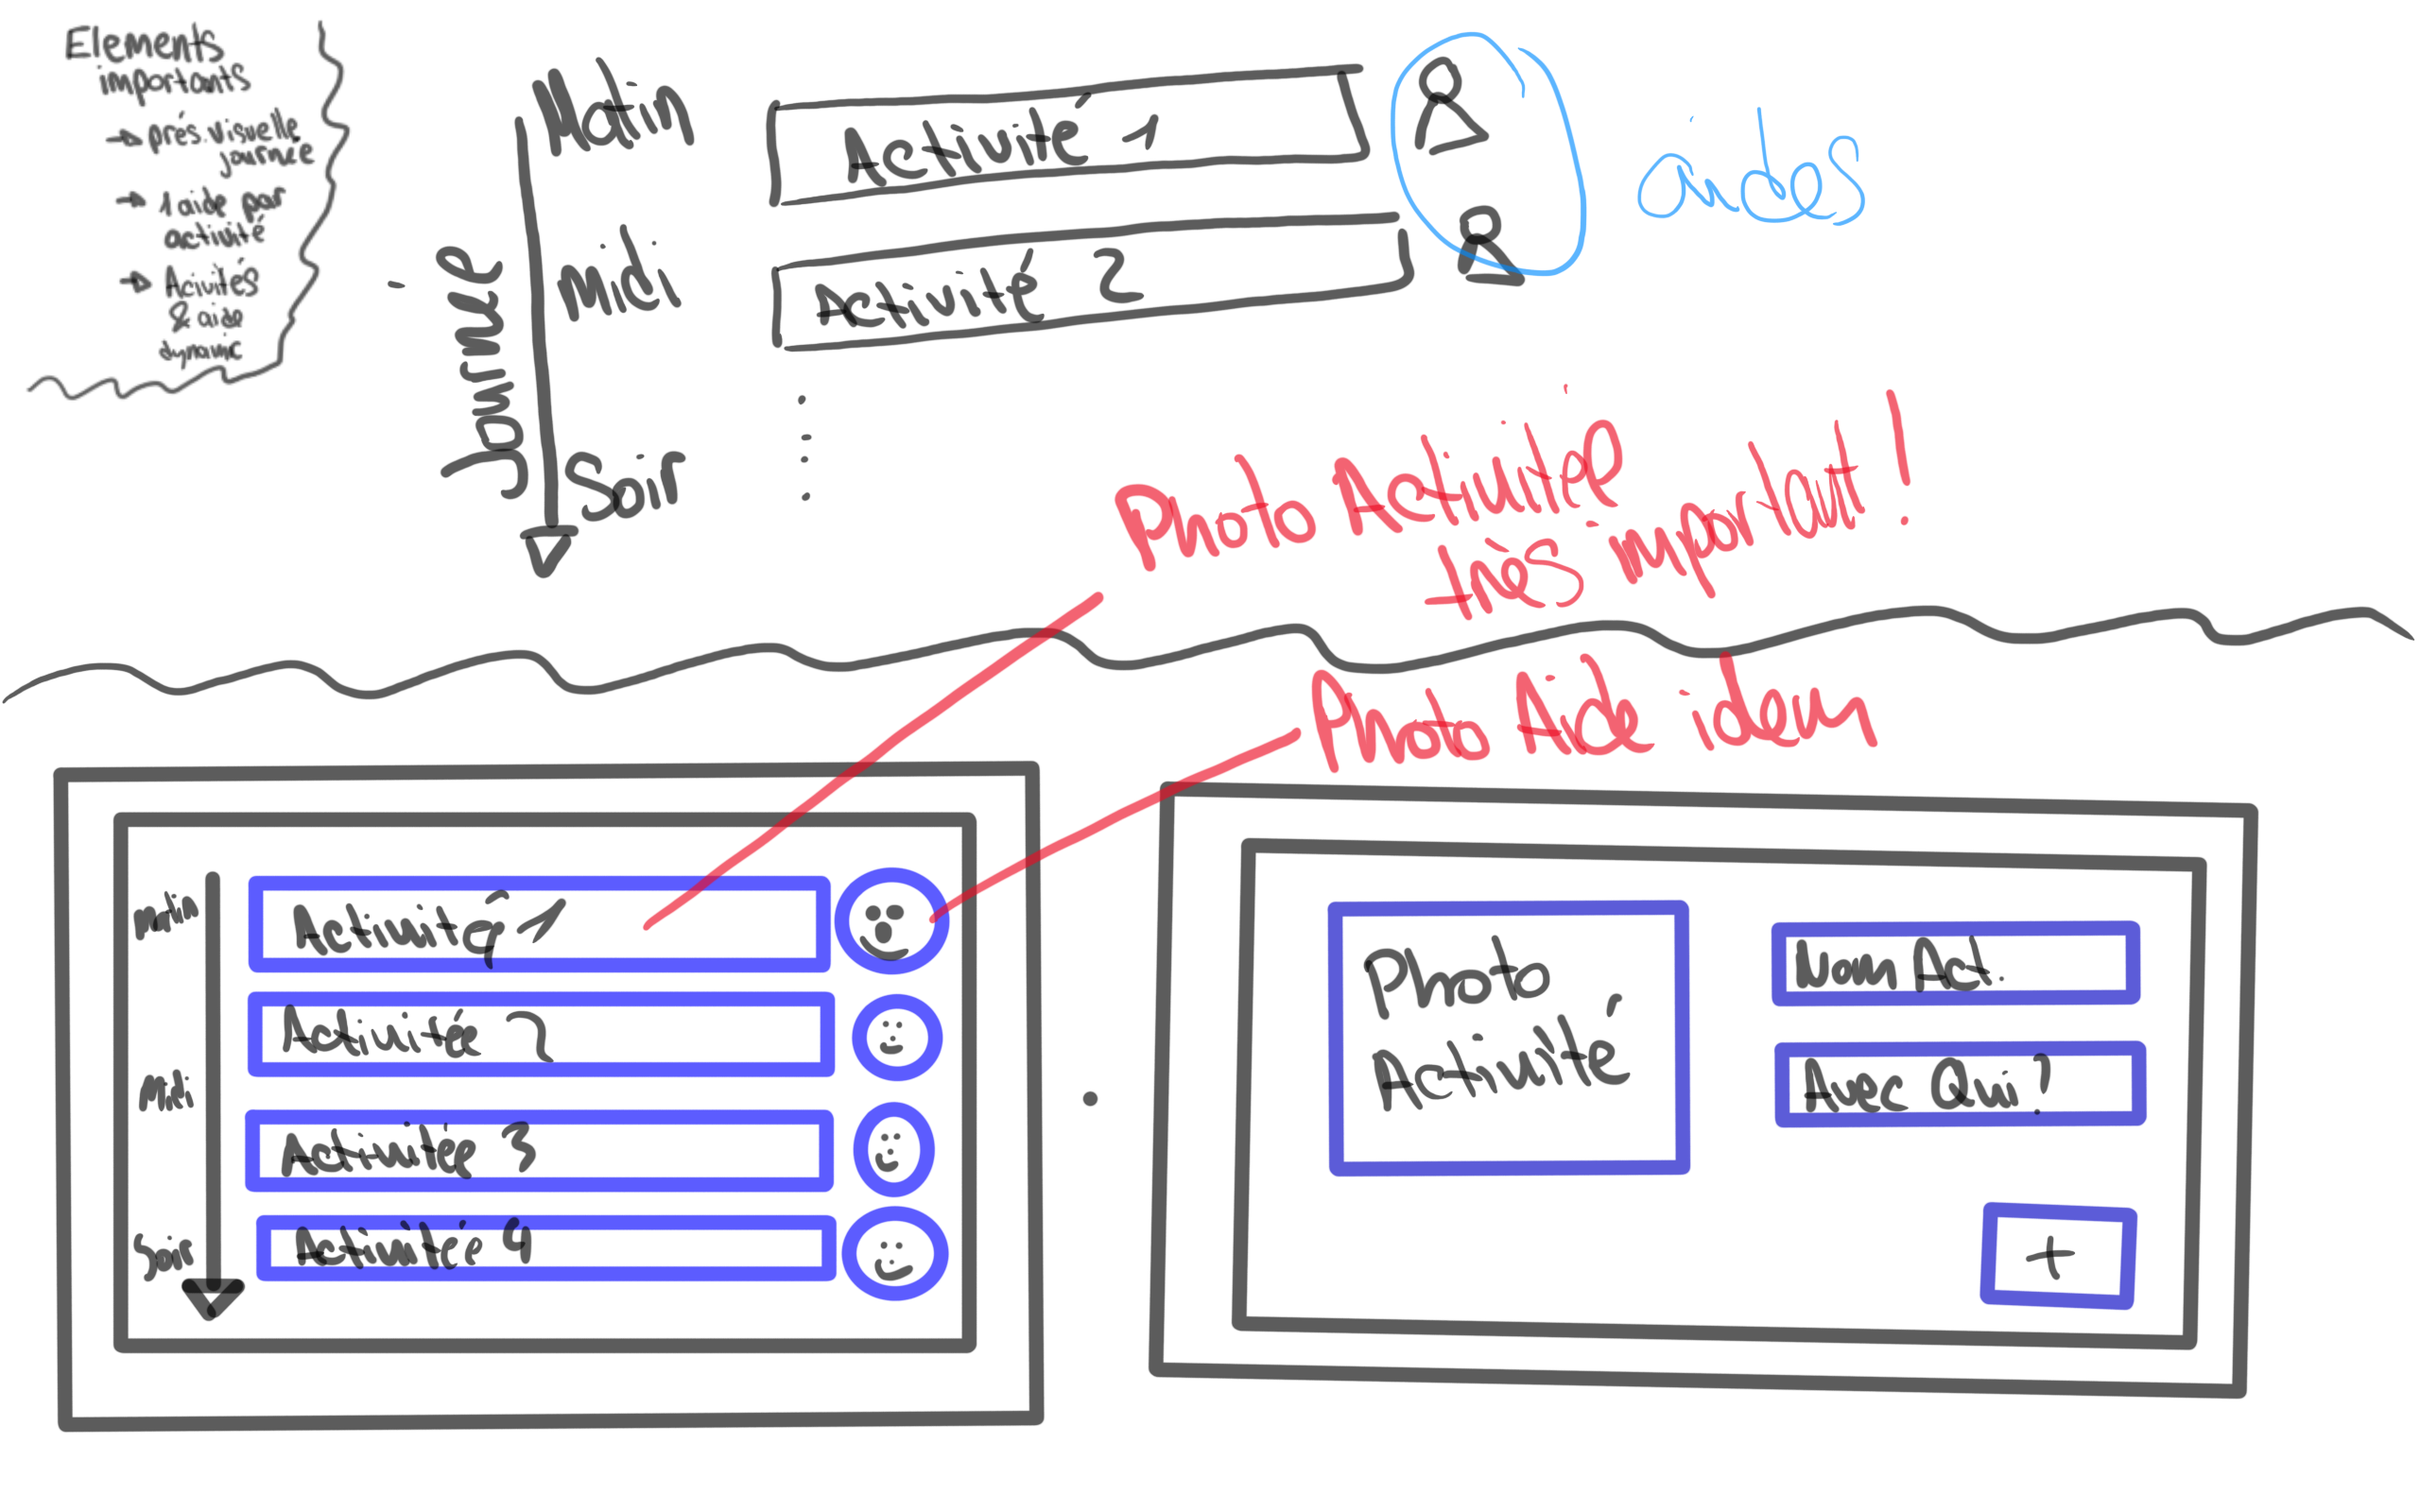 Elements
importants
→ prés. visuelle
journée
→ 1 aide par
activité
→ Acivités
& aide
dynamic
Journée
Matin
Midi
Soir
Activité 1
Activité 2
aides
Photo Activité
très important!
Photo Aide idem
Matin
Midi
Soir
Activité 1
Activitée 2
Activitée 3
Activitée 4
Photo
Activité
Nom Act.
Avec Qui?
+